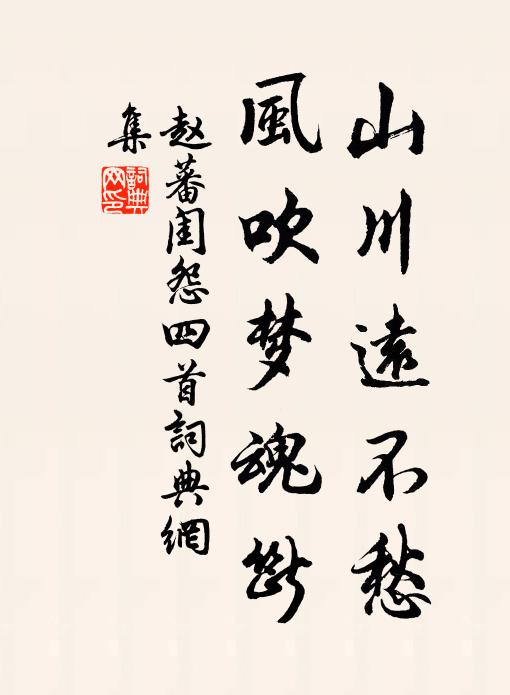 山川遠不愁
風吹梦魂断
赵蕃闺怨四首詞典網
集
詞典
网印